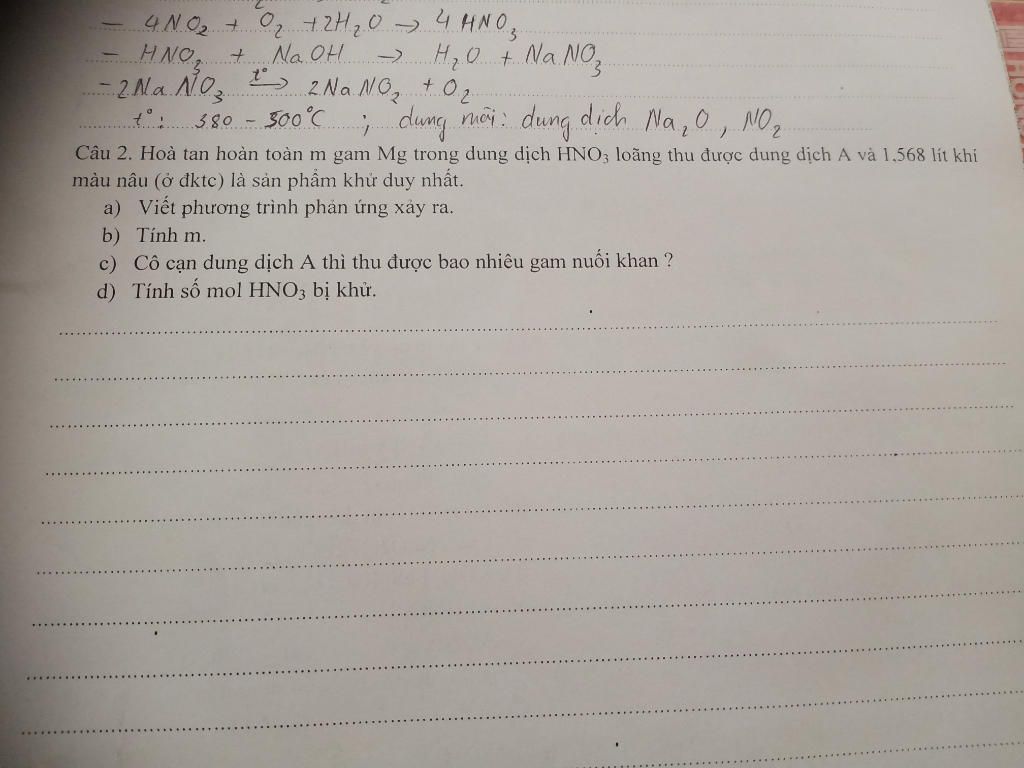 - 4NO₂ + O₂ + 2H₂O → 4HNO₃
- HNO₃ + NaOH → H₂O + NaNO₃
- 2NaNO₃ t° → 2NaNO₂ + O₂
t°: 380 - 500°C ; dung môi: dung dịch Na₂O, NO₂
Câu 2. Hoà tan hoàn toàn m gam Mg trong dung dịch HNO₃ loãng thu được dung dịch A và 1,568 lít khí
màu nâu (ở đktc) là sản phẩm khử duy nhất.
a) Viết phương trình phản ứng xảy ra.
b) Tính m.
c) Cô cạn dung dịch A thì thu được bao nhiêu gam nuối khan ?
d) Tính số mol HNO₃ bị khử.